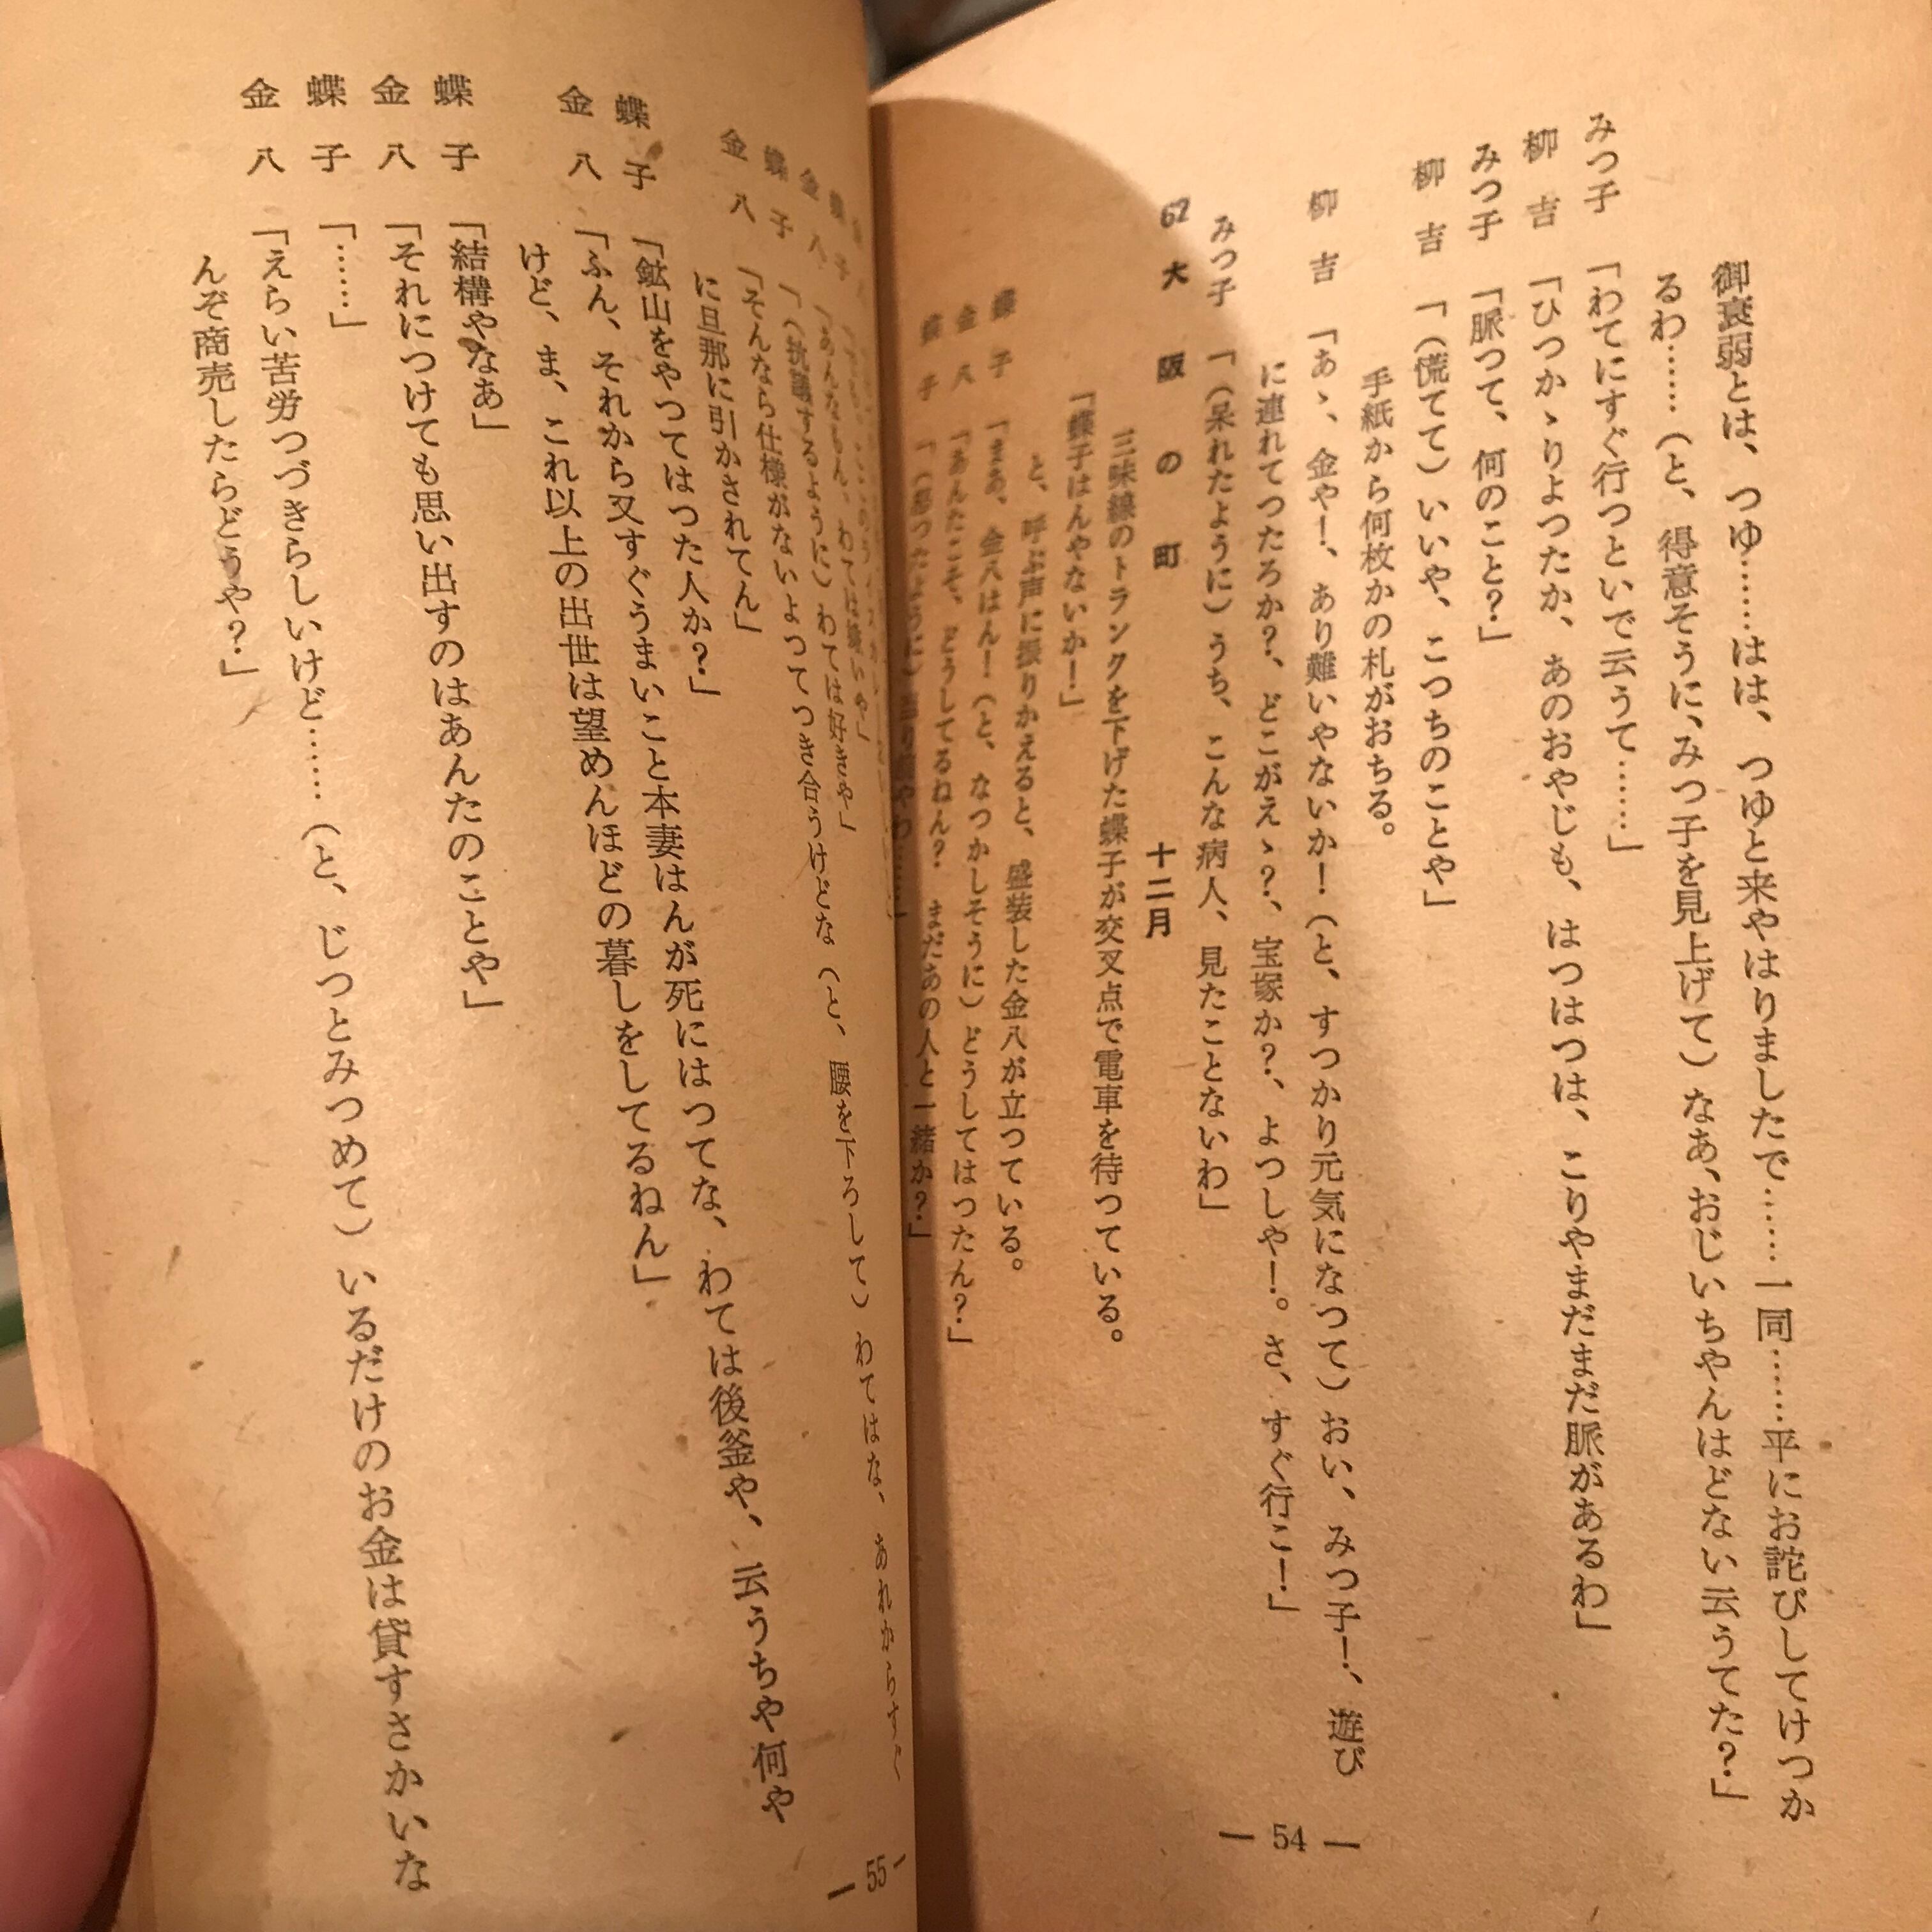 御衰弱とは、つゆ……はは、つゆと来やはりましたで……一同……平にお詫びしてけつか
るわ……（と、得意そうに、みつ子を見上げて）なあ、おじいちやんはどない云うてた？」
みつ子「わてにすぐ行つといで云うて……」
柳吉「ひつかゝりよつたか、あのおやじも、はつはつは、こりやまだまだ脈があるわ」
みつ子「脈つて、何のこと？」
柳吉「（慌てて）いいや、こつちのことや」
手紙から何枚かの札がおちる。
柳吉「あゝ、金や！、あり難いやないか！（と、すつかり元気になつて）おい、みつ子！、遊び
に連れてつたろか？、どこがえゝ？、宝塚か？、よつしや！。さ、すぐ行こ！」
みつ子「（呆れたように）うち、こんな病人、見たことないわ」
62 大阪の町 十二月
三味線のトランクを下げた蝶子が交叉点で電車を待つている。
「蝶子はんやないか！」
と、呼ぶ声に振りかえると、盛装した金八が立つている。
蝶子「まあ、金八はん！（と、なつかしそうに）どうしてはつたん？」
金八「あんたこそ、どうしてるねん？ まだあの人と一緒か？」
蝶子「（怒つたように）当り前やわ……」
— 54 —
「あんなもん、わては嫌いや」
蝶子「（抗議するように）わては好きや」
金八「そんなら仕様がないよつてつき合うけどな（と、腰を下ろして）わてはな、あれからすぐ
に旦那に引かされてん」
蝶子「鉱山をやつてはつた人か？」
金八「ふん、それから又すぐうまいこと本妻はんが死にはつてな、わては後釜や、云うちや何や
けど、ま、これ以上の出世は望めんほどの暮しをしてるねん」
蝶子「結構やなあ」
金八「それにつけても思い出すのはあんたのことや」
蝶子「……」
金八「えらい苦労つづきらしいけど……（と、じつとみつめて）いるだけのお金は貸すさかいな
んぞ商売したらどうや？」
— 55 —